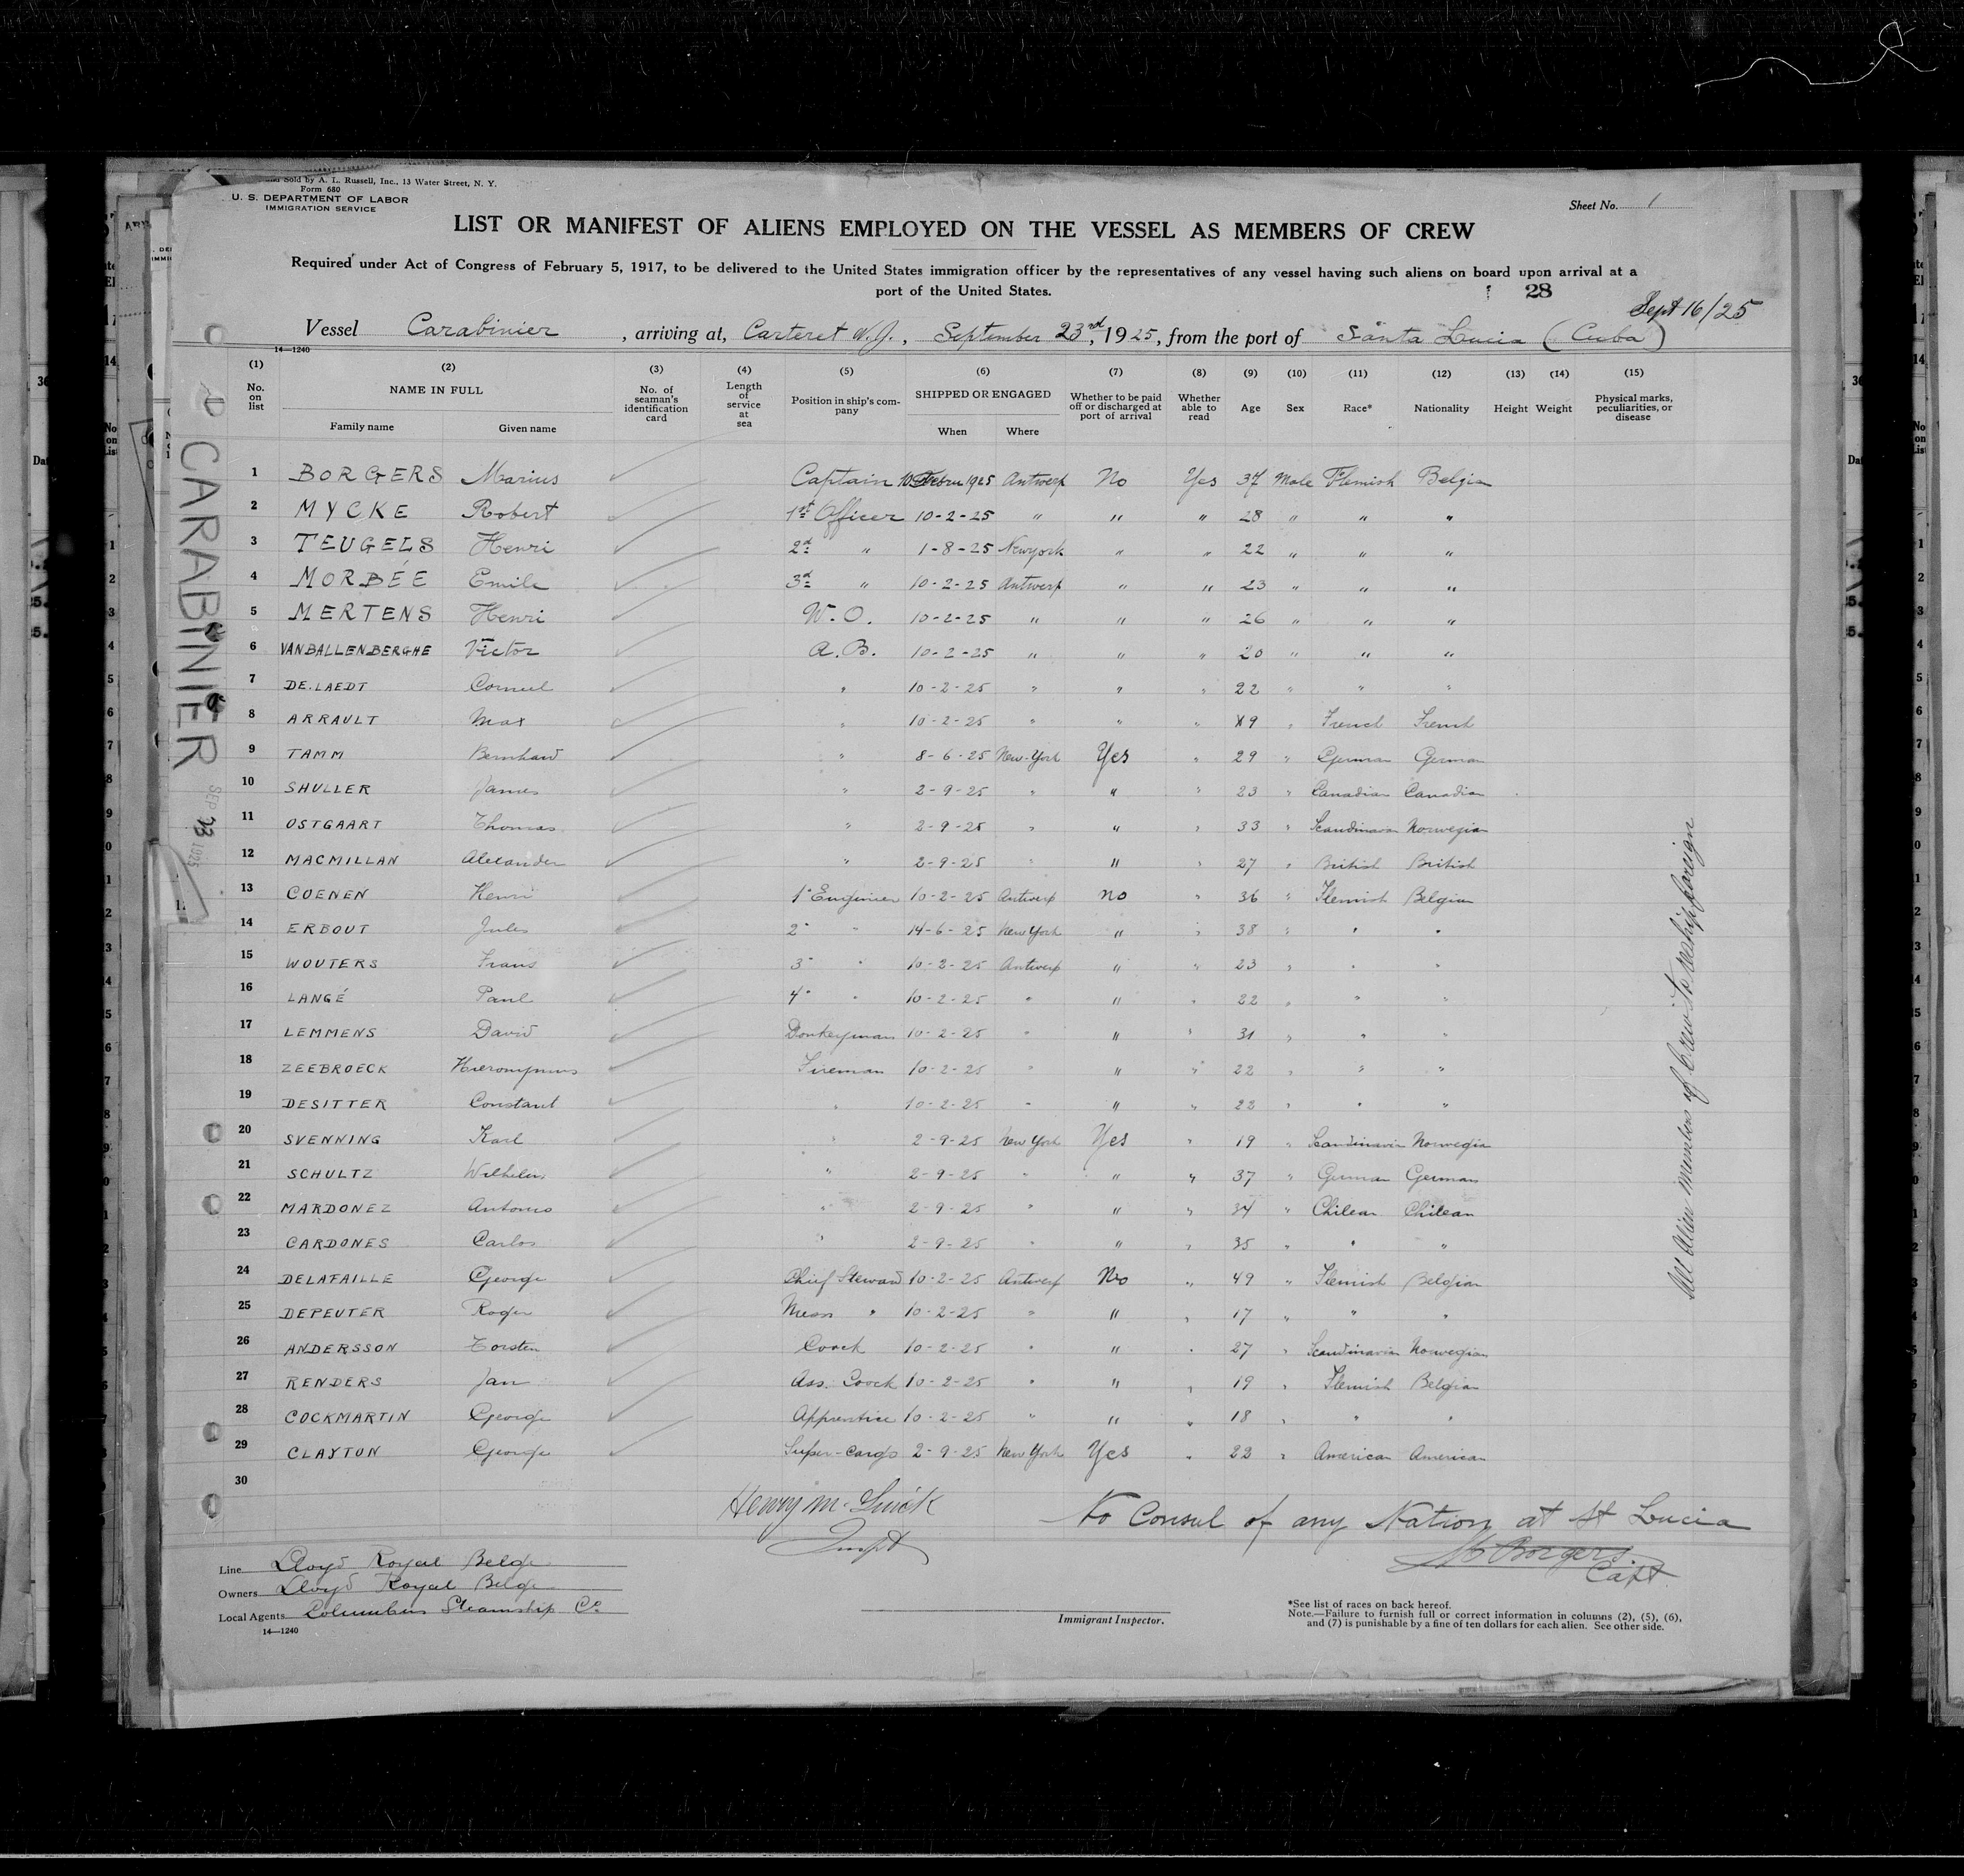 and Sold by A. L. Russell, Inc., 13 Water Street, N. Y.
Form 680
U. S. DEPARTMENT OF LABOR
IMMIGRATION SERVICE
Sheet No. 1
LIST OR MANIFEST OF ALIENS EMPLOYED ON THE VESSEL AS MEMBERS OF CREW
Required under Act of Congress of February 5, 1917, to be delivered to the United States immigration officer by the representatives of any vessel having such aliens on board upon arrival at a
port of the United States.
28
Sept 16/25
Vessel Carabinier, arriving at, Carteret N.J., September 23rd, 1925, from the port of Santa Lucia (Cuba)
14—1240
(1) (2) (3) (4) (5) (6) (7) (8) (9) (10) (11) (12) (13) (14) (15)
No. on list NAME IN FULL Family name Given name No. of seaman's identification card Length of service at sea Position in ship's company SHIPPED OR ENGAGED When Where Whether to be paid off or discharged at port of arrival Whether able to read Age Sex Race* Nationality Height Weight Physical marks, peculiarities, or disease
1 BORGERS Marius Captain 1925 Antwerp No Yes 37 Male Flemish Belgian
2 MYCKE Robert 1st Officer 10-2-25 " " " 28 " " "
3 TEUGELS Henri 2d " 1-8-25 Newyork " " 22 " " "
4 MORBÉE Emile 3d " 10-2-25 Antwerp " " 23 " " "
5 MERTENS Henri W.O. 10-2-25 " " " 26 " " "
6 VANBALLENBERGHE Victor A.B. 10-2-25 " " " 20 " " "
7 DE.LAEDT Corneel " 10-2-25 " " " 22 " " "
8 ARRAULT Max " 10-2-25 " " " 9 " French French
9 TAMM Bernhard " 8-6-25 New-York Yes " 29 " German German
10 SHULLER James " 2-9-25 " " " 23 " Canadian Canadian
11 OSTGAART Thomas " 2-9-25 " " " 33 " Scandinavian Norwegian
12 MACMILLAN Alexander " 2-9-25 " " " 27 " British British
13 COENEN Henri 1° Enginier 10-2-25 Antwerp no " 36 " Flemish Belgian
14 ERBOUT Jules 2° " 14-6-25 New York " " 38 " " "
15 WOUTERS Frans 3° " 10-2-25 Antwerp " " 23 " " "
16 LANGÉ Paul 4° " 10-2-25 " " " 22 " " "
17 LEMMENS David Donkeyman 10-2-25 " " " 31 " " "
18 ZEEBROECK Hieronymus Fireman 10-2-25 " " " 22 " " "
19 DESITTER Constant " 10-2-25 " " " 22 " " "
20 SVENNING Karl " 2-9-25 New York Yes " 19 " Scandinavian Norwegian
21 SCHULTZ Wilhelm " 2-9-25 " " " 37 " German German
22 MARDONEZ Antonio " 2-9-25 " " " 34 " Chilean Chilean
23 CARDONES Carlos " 2-9-25 " " " 35 " " "
24 DELAFAILLE George Chief Steward 10-2-25 Antwerp No " 49 " Flemish Belgian
25 DEPEUTER Roger Mess " 10-2-25 " " " 17 " " "
26 ANDERSSON Torsten Coock 10-2-25 " " " 27 " Scandinavian Norwegian
27 RENDERS Jan Ass. Coock 10-2-25 " " " 19 " Flemish Belgian
28 COCKMARTIN George Apprentice 10-2-25 " " " 18 " " "
29 CLAYTON George Super-cargo 2-9-25 New York Yes " 23 " American American
30
CARABINIER
SEP 23 1925
All Alien members of Crew to reship foreign
Henry M.
Inspt
No Consul of any Nation at St Lucia
M Borgers
Capt.
Line Lloyd Royal Belge
Owners Lloyd Royal Belge
Local Agents Columbus Steamship Co
14—1240
Immigrant Inspector.
*See list of races on back hereof.
Note.—Failure to furnish full or correct information in columns (2), (5), (6),
and (7) is punishable by a fine of ten dollars for each alien. See other side.